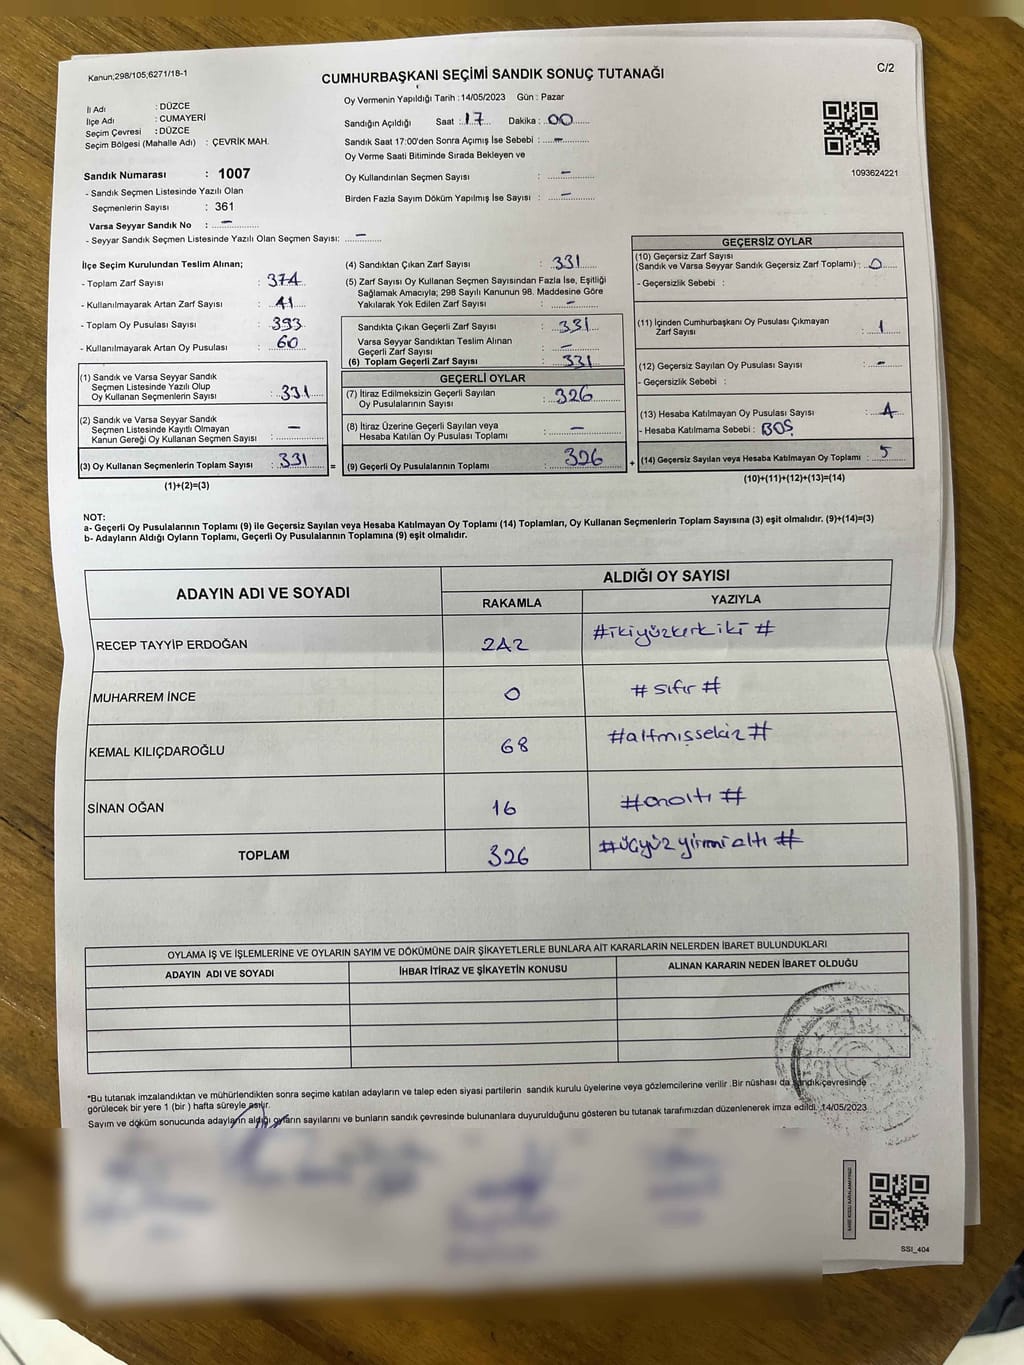 Kanun;298/105;6271/18-1
CUMHURBAŞKANI SEÇİMİ SANDIK SONUÇ TUTANAĞI
C/2
İl Adı : DÜZCE
İlçe Adı : CUMAYERİ
Seçim Çevresi : DÜZCE
Seçim Bölgesi (Mahalle Adı) : ÇEVRİK MAH.
Sandık Numarası : 1007
- Sandık Seçmen Listesinde Yazılı Olan
Seçmenlerin Sayısı : 361
Varsa Seyyar Sandık No : -
- Seyyar Sandık Seçmen Listesinde Yazılı Olan Seçmen Sayısı: -
Oy Vermenin Yapıldığı Tarih :14/05/2023 Gün : Pazar
Sandığın Açıldığı Saat : 17 Dakika : 00
Sandık Saat 17:00'den Sonra Açımış İse Sebebi : -
Oy Verme Saati Bitiminde Sırada Bekleyen ve
Oy Kullandırılan Seçmen Sayısı : -
Birden Fazla Sayım Döküm Yapılmış İse Sayısı : -
1093624221
İlçe Seçim Kurulundan Teslim Alınan;
- Toplam Zarf Sayısı : 374
- Kullanılmayarak Artan Zarf Sayısı : 41
- Toplam Oy Pusulası Sayısı : 393
- Kullanılmayarak Artan Oy Pusulası : 60
(1) Sandık ve Varsa Seyyar Sandık
Seçmen Listesinde Yazılı Olup
Oy Kullanan Seçmenlerin Sayısı : 331
(2) Sandık ve Varsa Seyyar Sandık
Seçmen Listesinde Kayıtlı Olmayan
Kanun Gereği Oy Kullanan Seçmen Sayısı : -
(3) Oy Kullanan Seçmenlerin Toplam Sayısı : 331
(1)+(2)=(3)
(4) Sandıktan Çıkan Zarf Sayısı : 331
(5) Zarf Sayısı Oy Kullanan Seçmen Sayısından Fazla İse, Eşitliği
Sağlamak Amacıyla; 298 Sayılı Kanunun 98. Maddesine Göre
Yakılarak Yok Edilen Zarf Sayısı : -
Sandıkta Çıkan Geçerli Zarf Sayısı : 331
Varsa Seyyar Sandıktan Teslim Alınan
Geçerli Zarf Sayısı : -
(6) Toplam Geçerli Zarf Sayısı : 331
GEÇERLİ OYLAR
(7) İtiraz Edilmeksizin Geçerli Sayılan
Oy Pusulalarının Sayısı : 326
(8) İtiraz Üzerine Geçerli Sayılan veya
Hesaba Katılan Oy Pusulası Toplamı : -
= (9) Geçerli Oy Pusulalarının Toplamı : 326
GEÇERSİZ OYLAR
(10) Geçersiz Zarf Sayısı
(Sandık ve Varsa Seyyar Sandık Geçersiz Zarf Toplamı) : 0
- Geçersizlik Sebebi :
(11) İçinden Cumhurbaşkanı Oy Pusulası Çıkmayan
Zarf Sayısı : 1
(12) Geçersiz Sayılan Oy Pusulası Sayısı : -
- Geçersizlik Sebebi :
(13) Hesaba Katılmayan Oy Pusulası Sayısı : 4
- Hesaba Katılmama Sebebi : BOŞ
+ (14) Geçersiz Sayılan veya Hesaba Katılmayan Oy Toplamı : 5
(10)+(11)+(12)+(13)=(14)
NOT:
a- Geçerli Oy Pusulalarının Toplamı (9) ile Geçersiz Sayılan veya Hesaba Katılmayan Oy Toplamı (14) Toplamları, Oy Kullanan Seçmenlerin Toplam Sayısına (3) eşit olmalıdır. (9)+(14)=(3)
b- Adayların Aldığı Oyların Toplamı, Geçerli Oy Pusulalarının Toplamına (9) eşit olmalıdır.
ADAYIN ADI VE SOYADI ALDIĞI OY SAYISI
RAKAMLA YAZIYLA
RECEP TAYYİP ERDOĞAN 242 #ikiyüzkırkiki#
MUHARREM İNCE 0 #sıfır#
KEMAL KILIÇDAROĞLU 68 #altmışsekiz#
SİNAN OĞAN 16 #onaltı#
TOPLAM 326 #üçyüz yirmi altı#
OYLAMA İŞ VE İŞLEMLERİNE VE OYLARIN SAYIM VE DÖKÜMÜNE DAİR ŞİKAYETLERLE BUNLARA AİT KARARLARIN NELERDEN İBARET BULUNDUKLARI
ADAYIN ADI VE SOYADI İHBAR İTİRAZ VE ŞİKAYETİN KONUSU ALINAN KARARIN NEDEN İBARET OLDUĞU
*Bu tutanak imzalandıktan ve mühürlendikten sonra seçime katılan adayların ve talep eden siyasi partilerin sandık kurulu üyelerine veya gözlemcilerine verilir .Bir nüshası da sandık çevresinde
görülecek bir yere 1 (bir ) hafta süreyle asılır.
Sayım ve döküm sonucunda adayların aldığı oyların sayılarını ve bunların sandık çevresinde bulunanlara duyurulduğunu gösteren bu tutanak tarafımızdan düzenlenerek imza edildi. 14/05/2023
SSİ_404